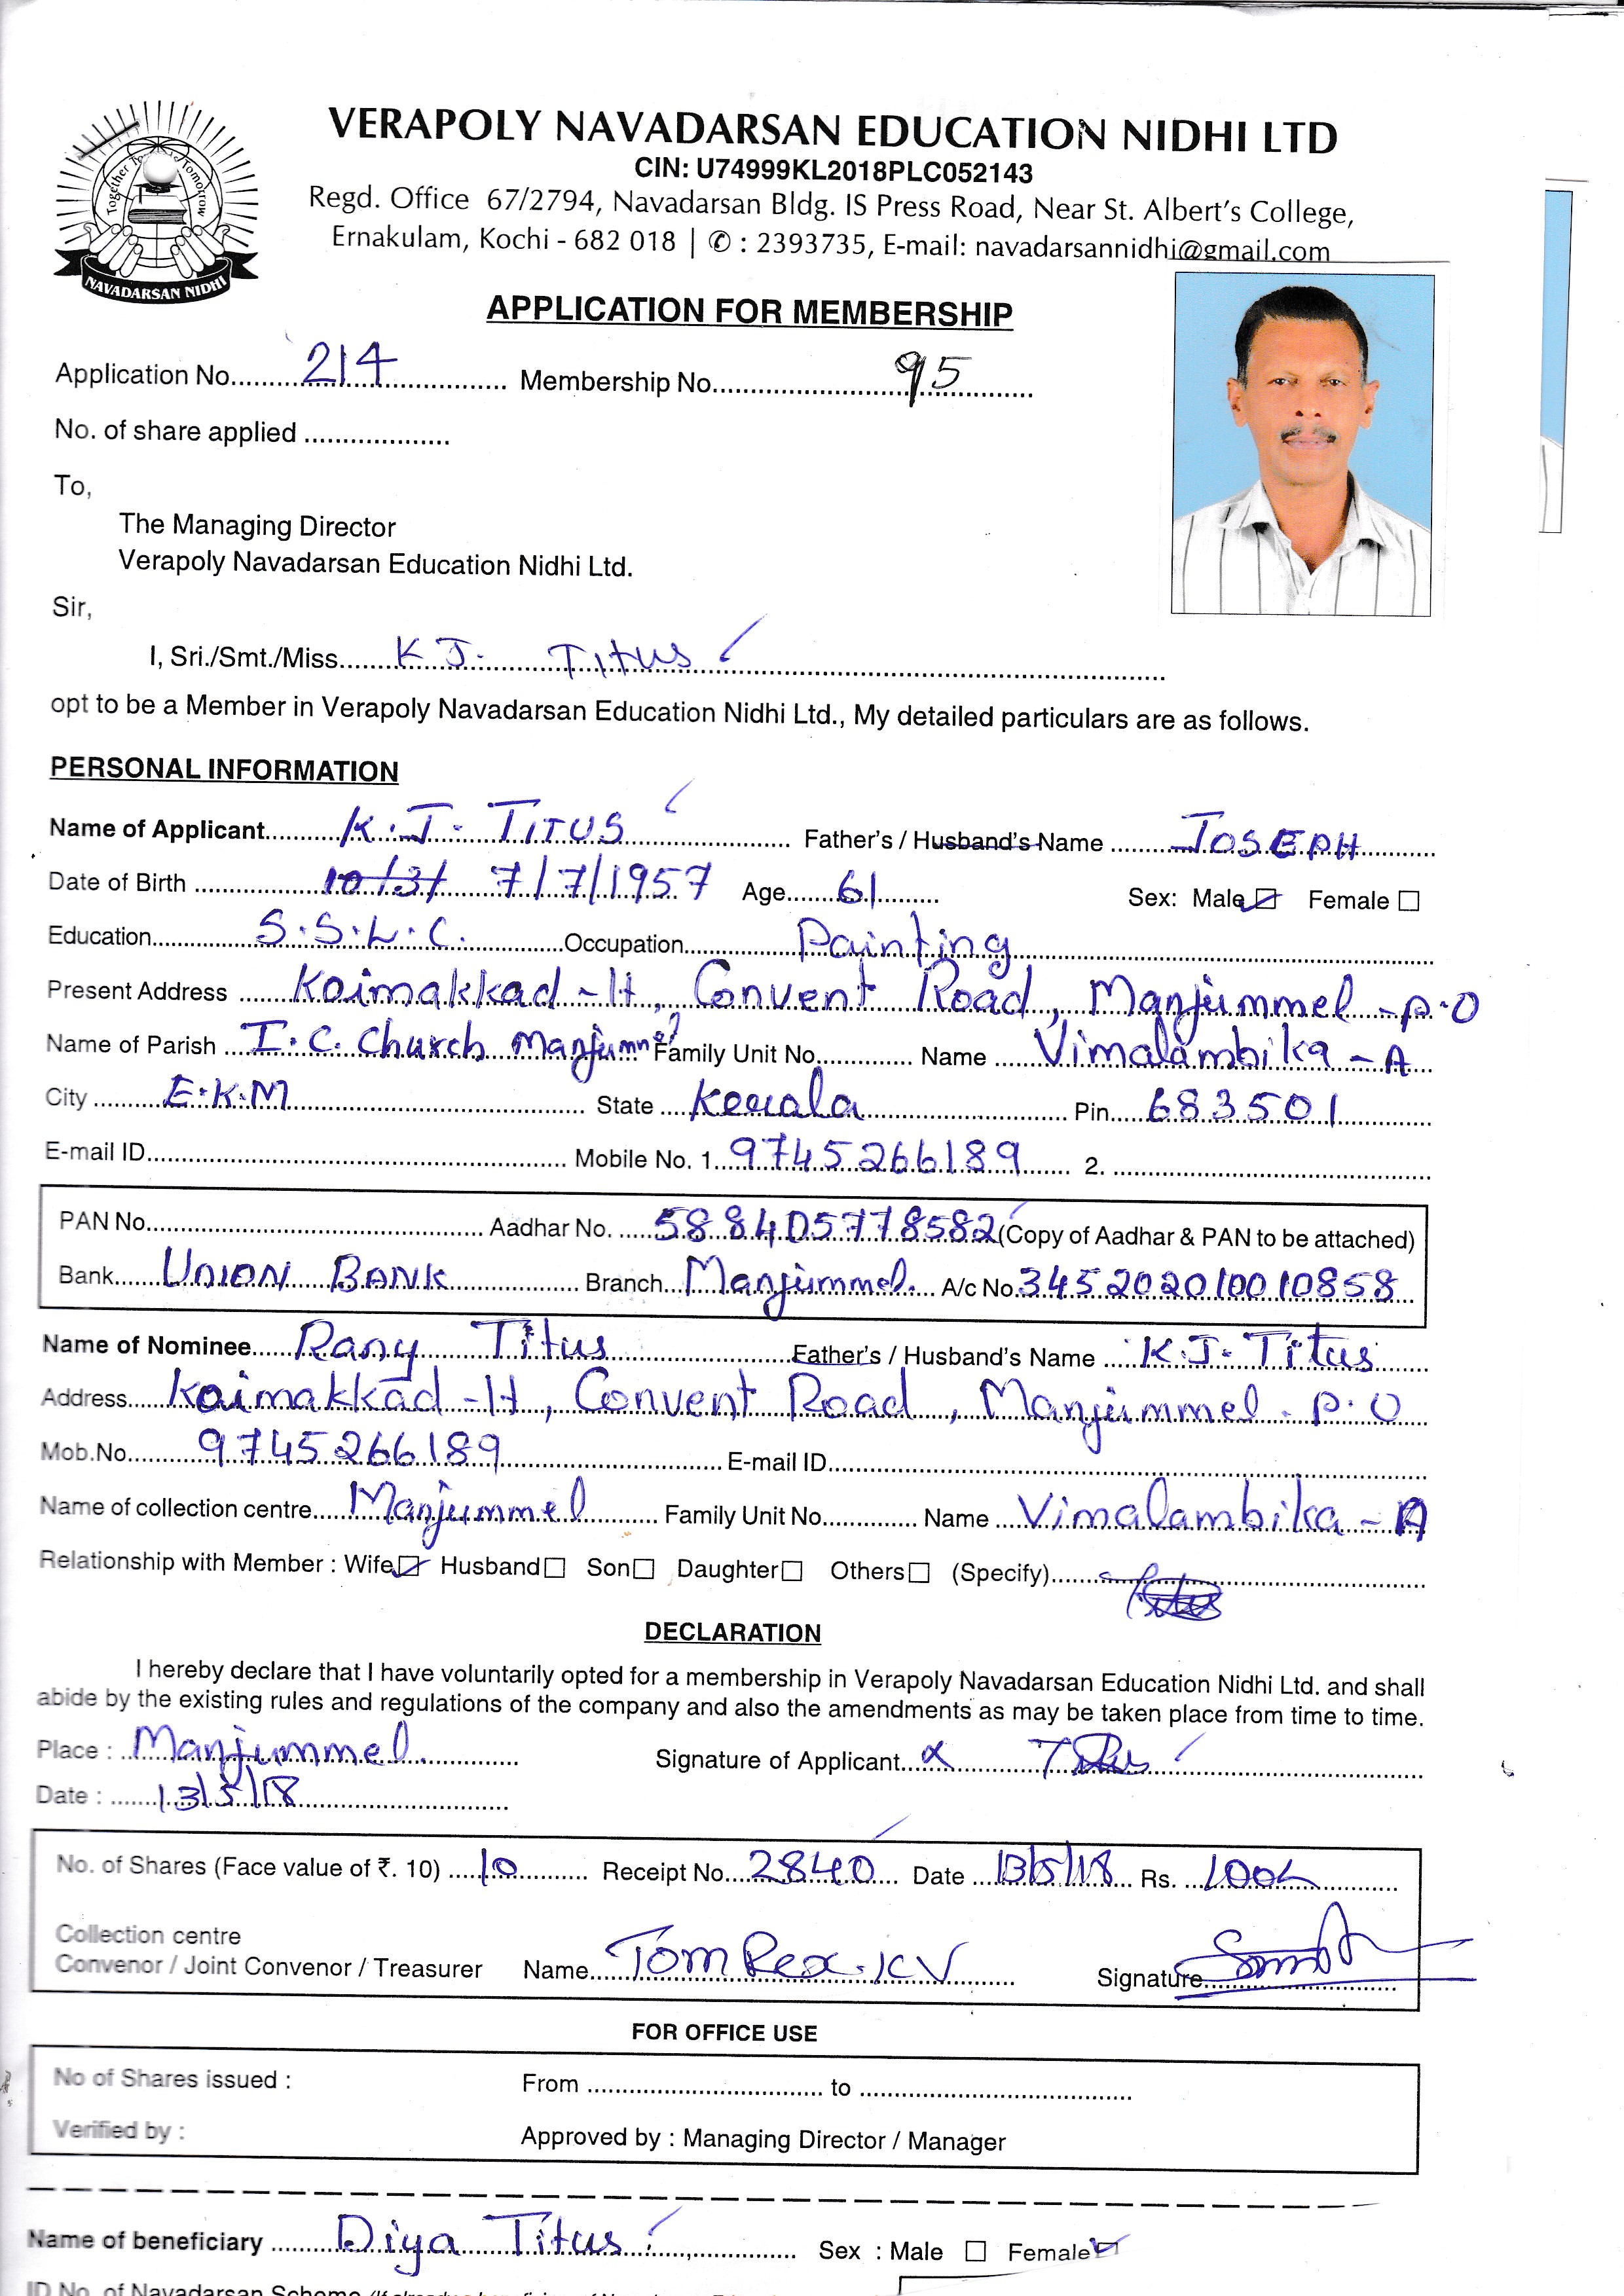 Together To
Tomorrow
NAVADARSAN NIDHI
VERAPOLY NAVADARSAN EDUCATION NIDHI LTD
CIN: U74999KL2018PLC052143
Regd. Office 67/2794, Navadarsan Bldg. IS Press Road, Near St. Albert's College,
Ernakulam, Kochi - 682 018 | ✆ : 2393735, E-mail: navadarsannidhi@gmail.com
APPLICATION FOR MEMBERSHIP
Application No. 214 Membership No. 95
No. of share applied
To,
The Managing Director
Verapoly Navadarsan Education Nidhi Ltd.
Sir,
I, Sri./Smt./Miss K J. Titus
opt to be a Member in Verapoly Navadarsan Education Nidhi Ltd., My detailed particulars are as follows.
PERSONAL INFORMATION
Name of Applicant K.J. TITUS Father's / Husband's Name JOSEPH
Date of Birth 10/3/ 7/7/1957 Age 61 Sex: Male Female
Education S.S.L.C. Occupation Painting
Present Address Koimakkad - H, Convent Road, Manjummel - p.o
Name of Parish I.C. Church Manjummel Family Unit No. Name Vimalambika - A
City E.K.M State Kerala Pin 683501
E-mail ID Mobile No. 1. 9745266189 2.
PAN No. Aadhar No. 588405778582 (Copy of Aadhar & PAN to be attached)
Bank UNION BANK Branch Manjummel. A/c No. 345202010010858
Name of Nominee Rany Titus Father's / Husband's Name K.J. Titus
Address Koimakkad - H, Convent Road, Manjummel. P.O
Mob.No. 9745266189 E-mail ID
Name of collection centre Manjummel Family Unit No. Name Vimalambika - A
Relationship with Member : Wife Husband Son Daughter Others (Specify)
DECLARATION
I hereby declare that I have voluntarily opted for a membership in Verapoly Navadarsan Education Nidhi Ltd. and shall
abide by the existing rules and regulations of the company and also the amendments as may be taken place from time to time.
Place : Manjummel. Signature of Applicant Titus
Date : 13/5/18
No. of Shares (Face value of ₹. 10) 10 Receipt No. 2840 Date 13/5/18 Rs. 100/-
Collection centre
Convenor / Joint Convenor / Treasurer Name Tom Rex. K V Signature
FOR OFFICE USE
No of Shares issued : From to
Verified by : Approved by : Managing Director / Manager
Name of beneficiary Diya Titus Sex : Male Female
ID No. of Navadarsan Scheme